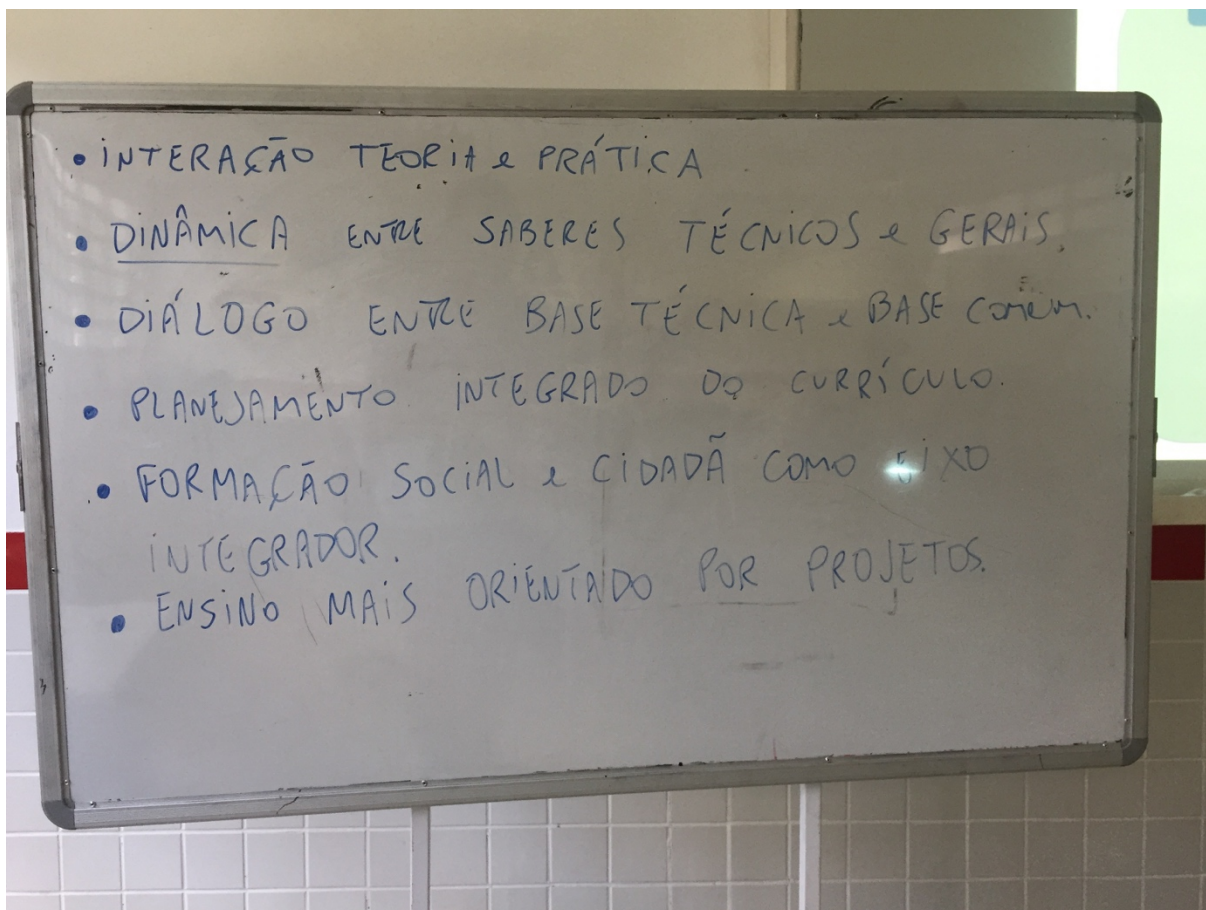 • INTERAÇÃO TEORIA e PRÁTICA
• DINÂMICA ENTRE SABERES TÉCNICOS e GERAIS.
• DIÁLOGO ENTRE BASE TÉCNICA e BASE comum.
• PLANEJAMENTO INTEGRADO DO CURRÍCULO.
• FORMAÇÃO SOCIAL e CIDADÃ COMO EIXO
INTEGRADOR.
• ENSINO MAIS ORIENTADO POR PROJETOS.